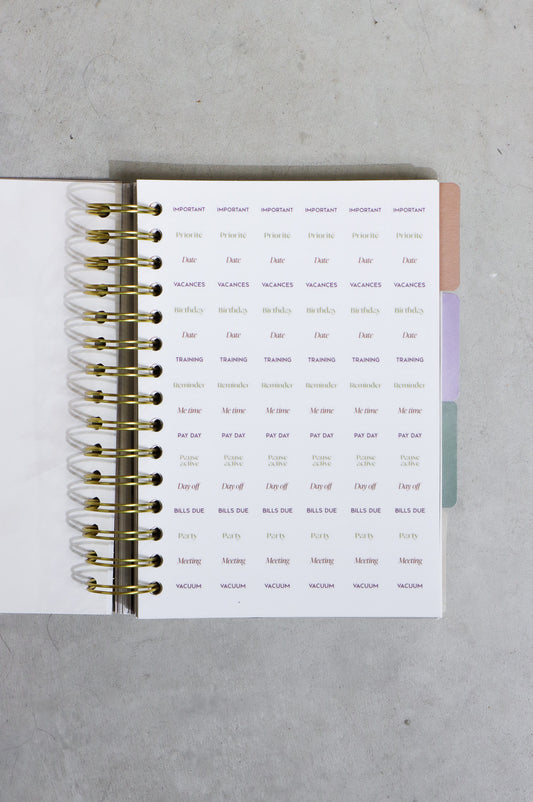 IMPORTANT IMPORTANT IMPORTANT IMPORTANT IMPORTANT IMPORTANT
Priorité Priorité Priorité Priorité Priorité Priorité
Date Date Date Date Date Date
VACANCES VACANCES VACANCES VACANCES VACANCES VACANCES
Birthday Birthday Birthday Birthday Birthday Birthday
Date Date Date Date Date Date
TRAINING TRAINING TRAINING TRAINING TRAINING TRAINING
Reminder Reminder Reminder Reminder Reminder Reminder
Me time Me time Me time Me time Me time Me time
PAY DAY PAY DAY PAY DAY PAY DAY PAY DAY PAY DAY
Pause Pause Pause Pause Pause Pause
active active active active active active
Day off Day off Day off Day off Day off Day off
BILLS DUE BILLS DUE BILLS DUE BILLS DUE BILLS DUE BILLS DUE
Party Party Party Party Party Party
Meeting Meeting Meeting Meeting Meeting Meeting
VACUUM VACUUM VACUUM VACUUM VACUUM VACUUM